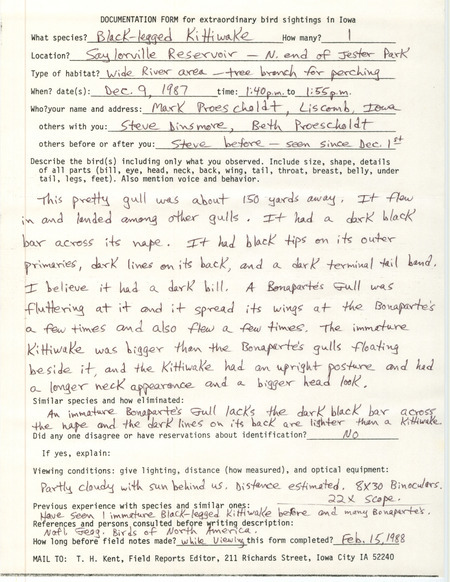 DOCUMENTATION FORM for extraordinary bird sightings in Iowa
What species? Black-legged Kittiwake How many? 1
Location? Saylorville Reservoir – N. end of Jester Park
Type of habitat? Wide River area – tree branch for perching
When? date(s): Dec. 9, 1987 time: 1:40 p.m. to 1:55 p.m.
Who? your name and address: Mark Proescholdt, Liscomb, Iowa
others with you: Steve Dinsmore, Beth Proescholdt
others before or after you: Steve before – seen since Dec. 1st
Describe the bird(s) including only what you observed. Include size, shape, details
of all parts (bill, eye, head, neck, back, wing, tail, throat, breast, belly, under
tail, legs, feet). Also mention voice and behavior.
This pretty gull was about 150 yards away. It flew
in and landed among other gulls. It had a dark black
bar across its nape. It had black tips on its outer
primaries, dark lines on its back, and a dark terminal tail band.
I believe it had a dark bill. A Bonaparte's Gull was
fluttering at it and it spread its wings at the Bonaparte's
a few times and also flew a few times. The immature
Kittiwake was bigger than the Bonaparte's gulls floating
beside it, and the Kittiwake had an upright posture and had
a longer neck appearance and a bigger head look.
Similar species and how eliminated:
An immature Bonaparte's Gull lacks the dark black bar across
the nape and the dark lines on its back are lighter than a Kittiwake.
Did any one disagree or have reservations about identification? NO
If yes, explain:
Viewing conditions: give lighting, distance (how measured), and optical equipment:
Partly cloudy with sun behind us. Distance estimated. 8X30 Binoculars.
22X Scope.
Previous experience with species and similar ones:
Have seen 1 immature Black-legged Kittiwake before and many Bonaparte's.
References and persons consulted before writing description:
Nat'l Geog. Birds of North America.
How long before field notes made? while viewing this form completed? Feb. 15, 1988
MAIL TO: T. H. Kent, Field Reports Editor, 211 Richards Street, Iowa City IA 52240